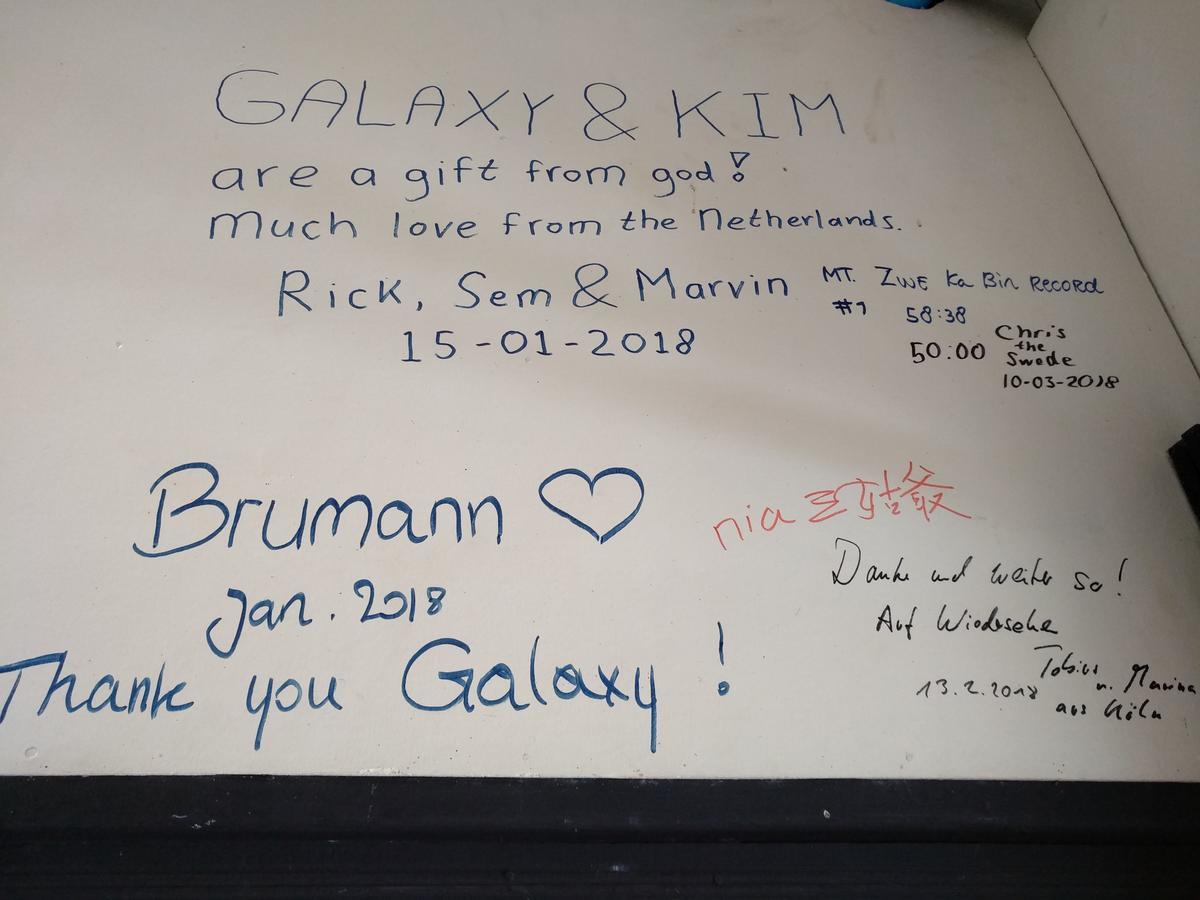 GALAXY & KIM
are a gift from god!
Much love from the Netherlands.
Rick, Sem & Marvin
15-01-2018
MT. ZWE Ka Bin RECORD
#1 58:38
50:00 Chris
the
Swede
10-03-2018
Brumann ♡
Jan. 2018
Thank you Galaxy!
nia
Danke und weiter so!
Auf Wiedersehen
Tobias
u. Marina
13.2.2018
aus Köln